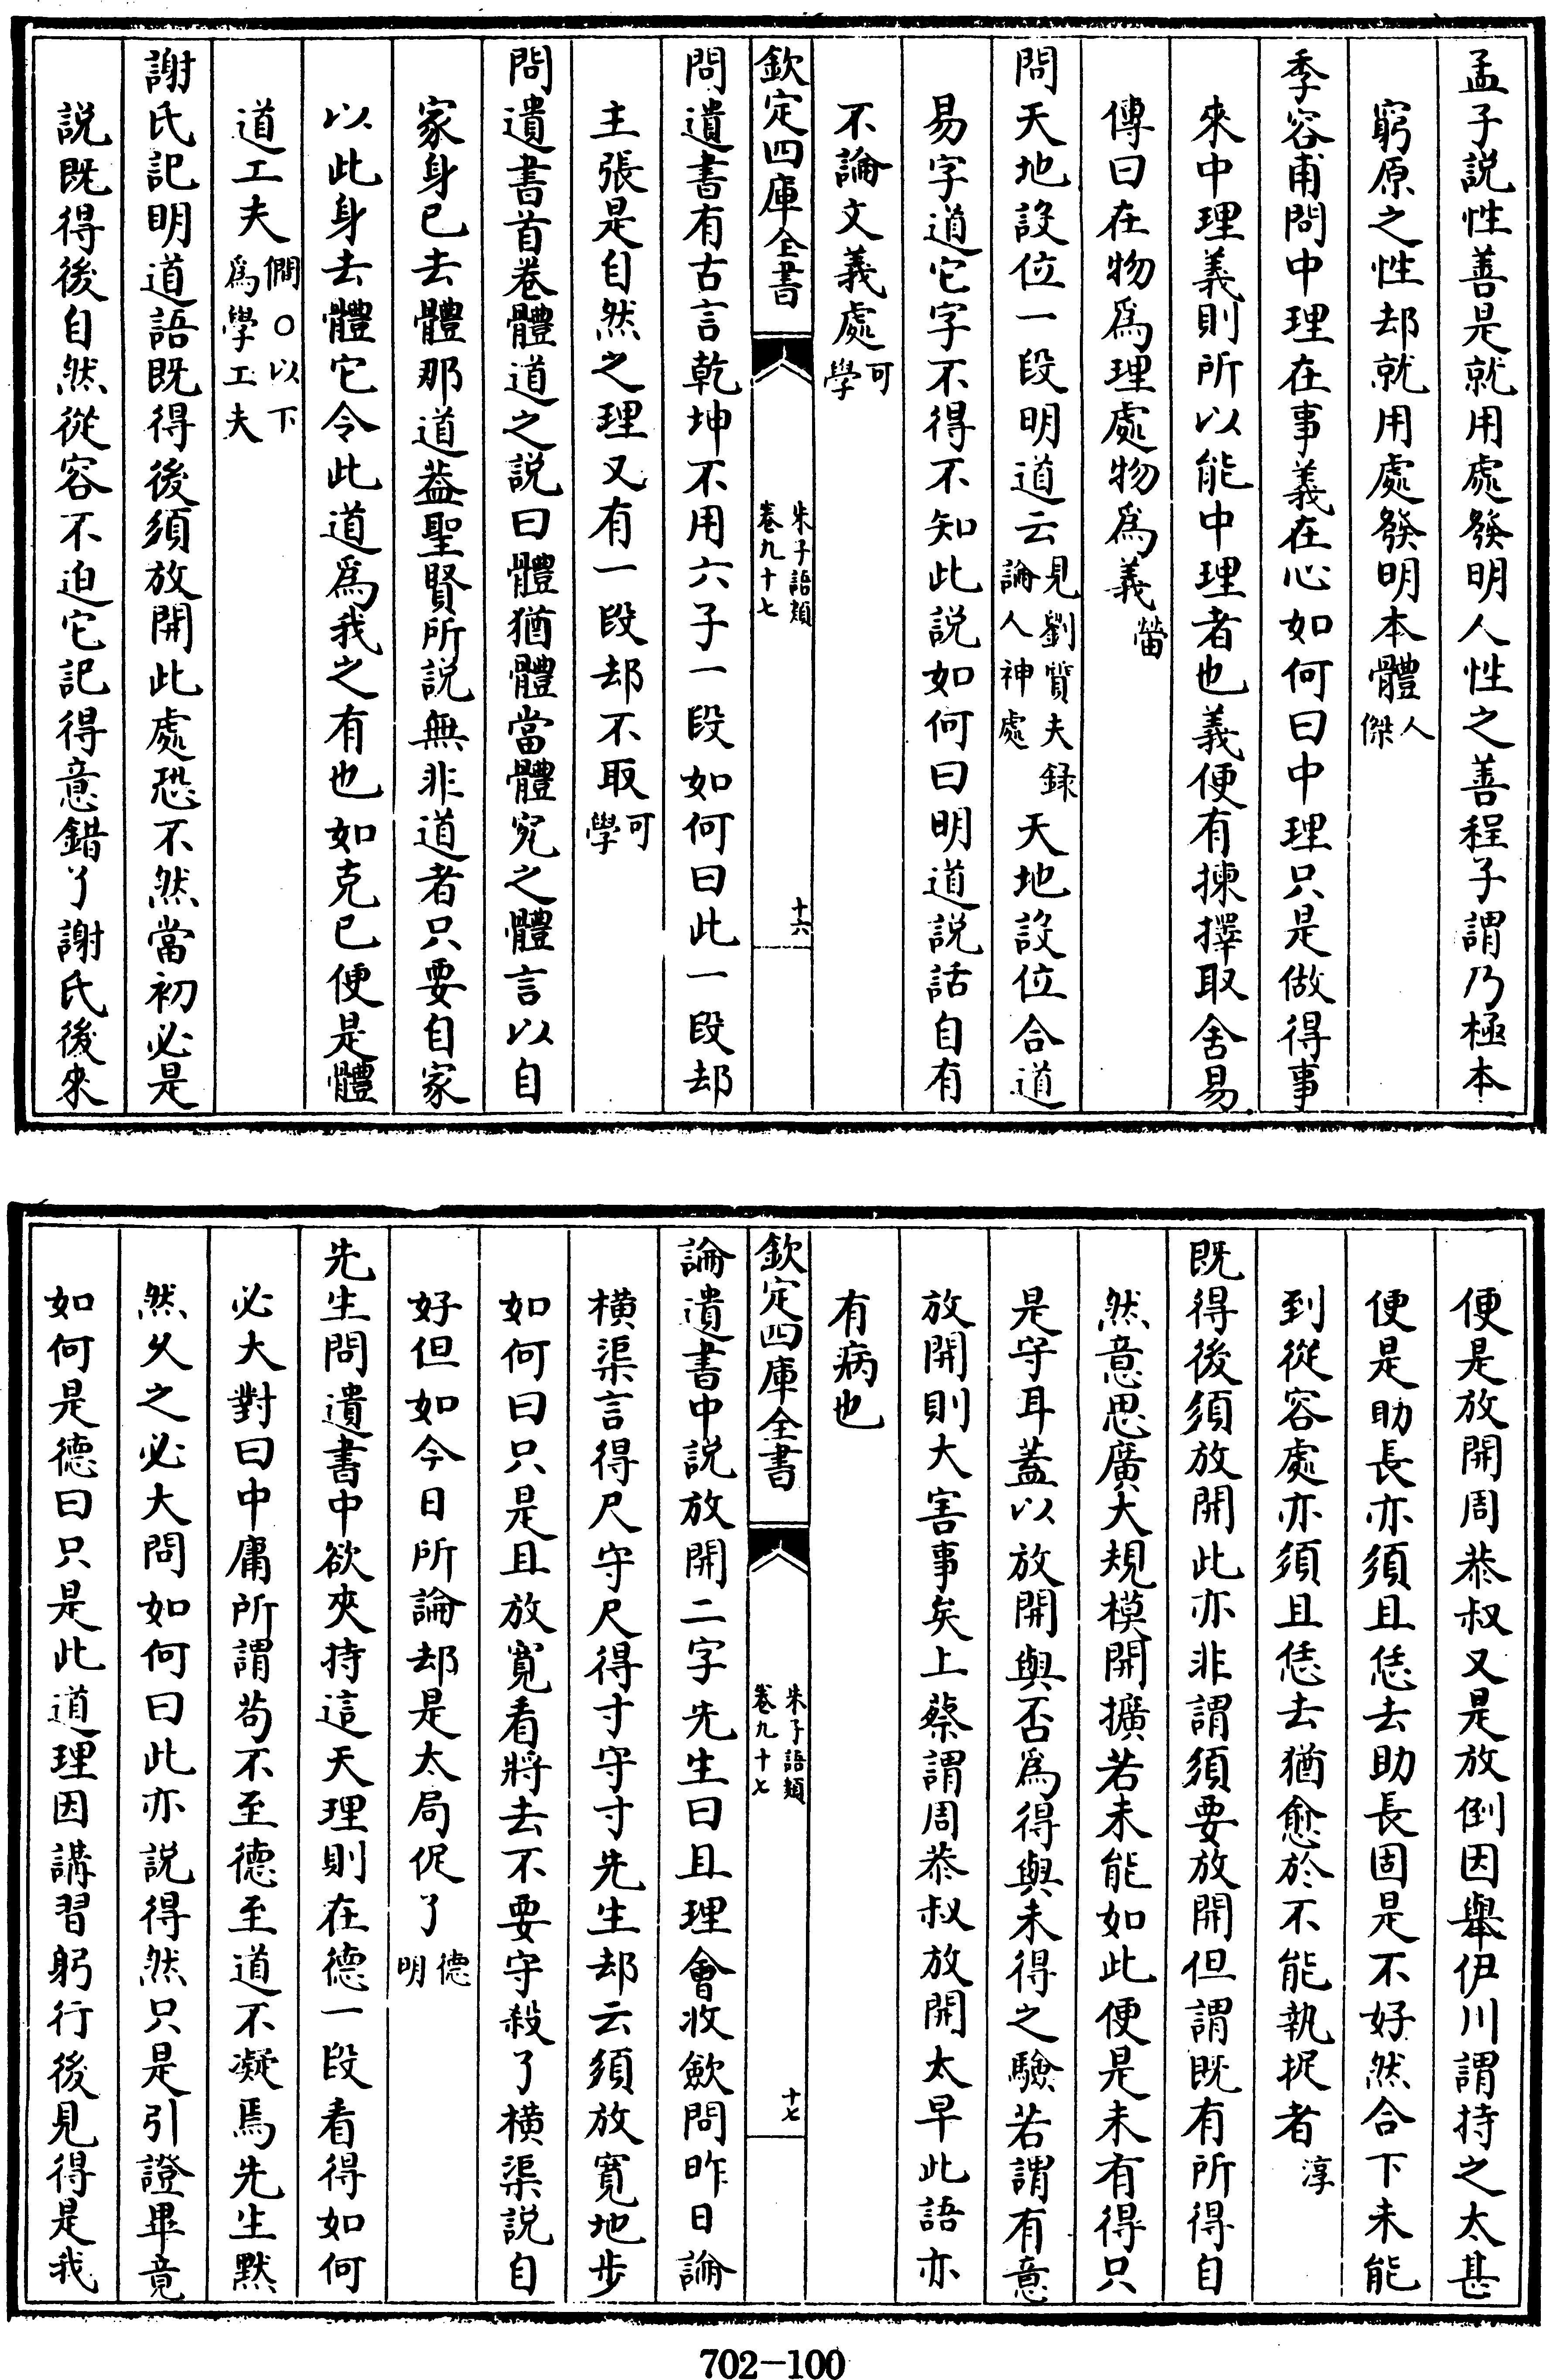 孟子説性善是就用處發明人性之善程子謂乃極本
窮原之性却就用處發明本體人傑
季容甫問中理在事義在心如何曰中理只是做得事
來中理義則所以能中理者也義便有揀擇取舍易
傳曰在物爲理處物爲義㽦
問天地設位一段明道云見劉質夫録論人神處天地設位合道
易字道它字不得不知此説如何曰明道説話自有
不論文義處可學
欽定四庫全書
朱子語類
卷九十七
十六
問遺書有古言乾坤不用六子一段如何曰此一段却
主張是自然之理又有一段却不取可學
問遺書首卷體道之説曰體猶體當體究之體言以自
家身已去體那道葢聖賢所説無非道者只要自家
以此身去體它令此道爲我之有也如克已便是體
道工夫僩○以下爲學工夫
謝氏記明道語既得後須放開此處恐不然當初必是
説既得後自然從容不迫它記得意錯了謝氏後來
便是放開周恭叔又是放倒因舉伊川謂持之太甚
便是助長亦須且恁去助長固是不好然合下未能
到從容處亦須且恁去猶愈於不能執捉者淳
既得後須放開此亦非謂須要放開但謂既有所得自
然意思廣大規模開擴若未能如此便是未有得只
是守耳蓋以放開與否爲得與未得之驗若謂有意
放開則大害事矣上蔡謂周恭叔放開太早此語亦
有病也
欽定四庫全書
朱子語類
卷九十七
十七
論遺書中説放開二字先生曰且理會收歛問昨日論
橫渠言得尺守尺得寸守寸先生却云須放寛地步
如何曰只是且放寛看將去不要守殺了橫渠説自
好但如今日所論却是太局促了德明
先生問遺書中欲夾持這天理則在德一段看得如何
必大對曰中庸所謂苟不至德至道不凝焉先生黙
然久之必大問如何曰此亦説得然只是引證畢竟
如何是德曰只是此道理因講習躬行後見得是我
702-100